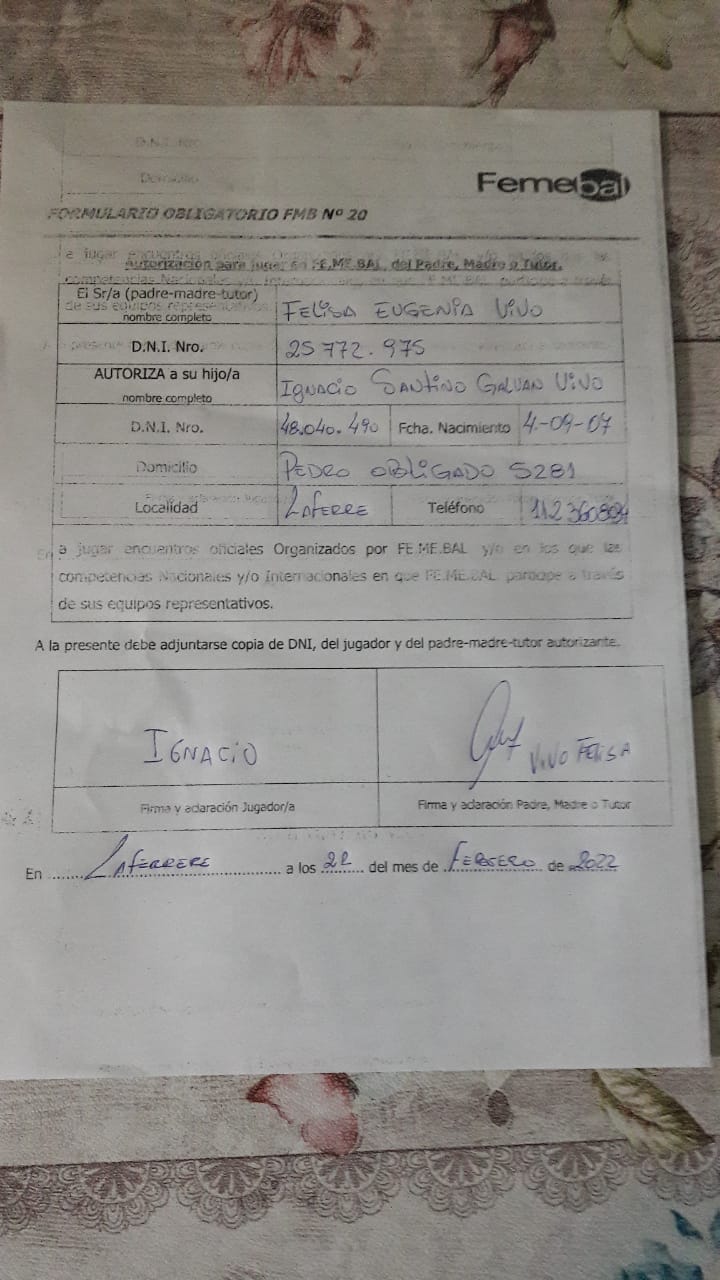 D.N.I. Nro.
Domicilio
Femebal
FORMULARIO OBLIGATORIO FMB Nº 20
Autorización para jugar en FE.ME.BAL. del Padre, Madre o Tutor.
El Sr/a (padre-madre-tutor)
nombre completo
FELISA EUGENIA VIVO
D.N.I. Nro.
25 772.975
AUTORIZA a su hijo/a
nombre completo
IGNACIO SANTINO GALVAN VIVO
D.N.I. Nro.
48.040.490
Fcha. Nacimiento
4-09-07
Domicilio
PEDRO OBLIGADO 5281
Localidad
LAFERRE
Teléfono
a jugar encuentros oficiales Organizados por FE.ME.BAL y/o en los que las
competencias Nacionales y/o Internacionales en que FE.ME.BAL participe a través
de sus equipos representativos.
A la presente debe adjuntarse copia de DNI, del jugador y del padre-madre-tutor autorizante.
IGNACIO
VIVO FELISA
Firma y aclaración Jugador/a
Firma y aclaración Padre, Madre o Tutor
En LAFERRERE a los 22 del mes de FEBRERO de 2022